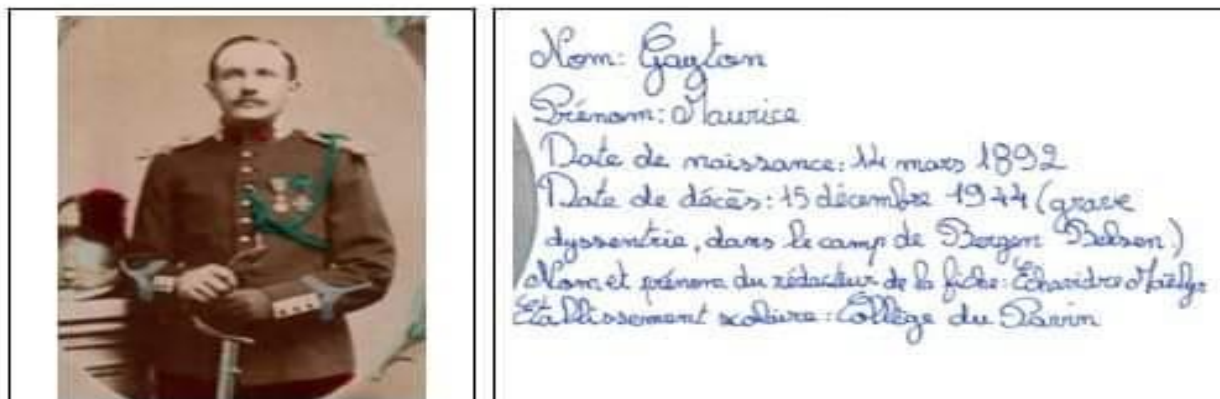 Nom: Gayton
Prénom: Maurice
Date de naissance: 14 mars 1892
Date de décès: 15 décembre 1944 (grave
dyssentrie, dans le camp de Bergen Belsen)
Nom et prénom du rédacteur de la fiche: Maëlys
Etablissement scolaire: Collège du Pavin